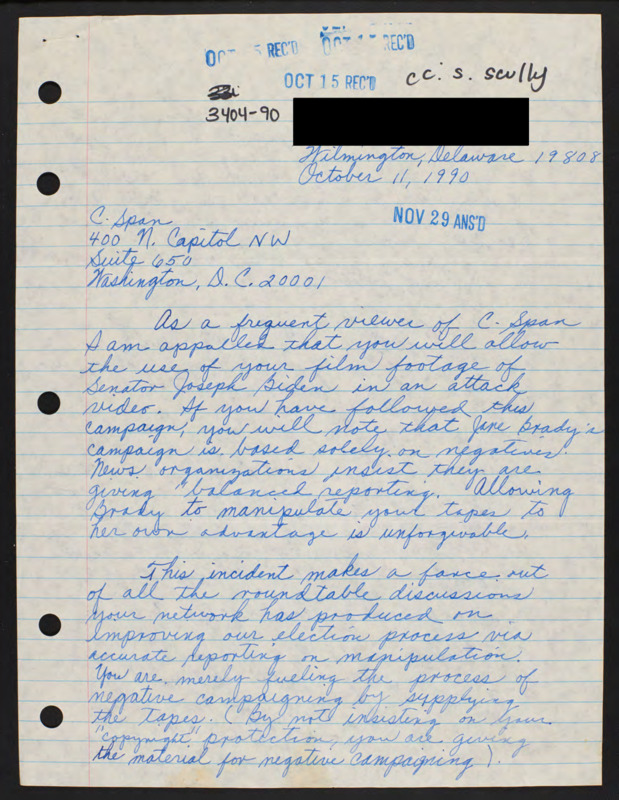 OCT 5 REC'D
OCT 15 REC'D
OCT 15 REC'D
cc: s. scully
3404-90
Wilmington, Delaware 19808
October 11, 1990
NOV 29 ANS'D
C-Span
400 N. Capitol NW
Suite 650
Washington, D.C. 20001
As a frequent viewer of C-Span
I am appalled that you will allow
the use of your film footage of
Senator Joseph Biden in an attack
video. If you have followed this
campaign, you will note that Jane Brady's
campaign is based solely on negatives.
News organizations insist they are
giving "balanced reporting. Allowing
Brady to manipulate your tapes to
her own advantage is unforgivable.
This incident makes a farce out
of all the roundtable discussions
your network has produced on
improving our election process via
accurate reporting on manipulation.
You are merely fueling the process of
negative campaigning by supplying
the tapes. (By not insisting on your
"copyright" protection, you are giving
the material for negative campaigning).